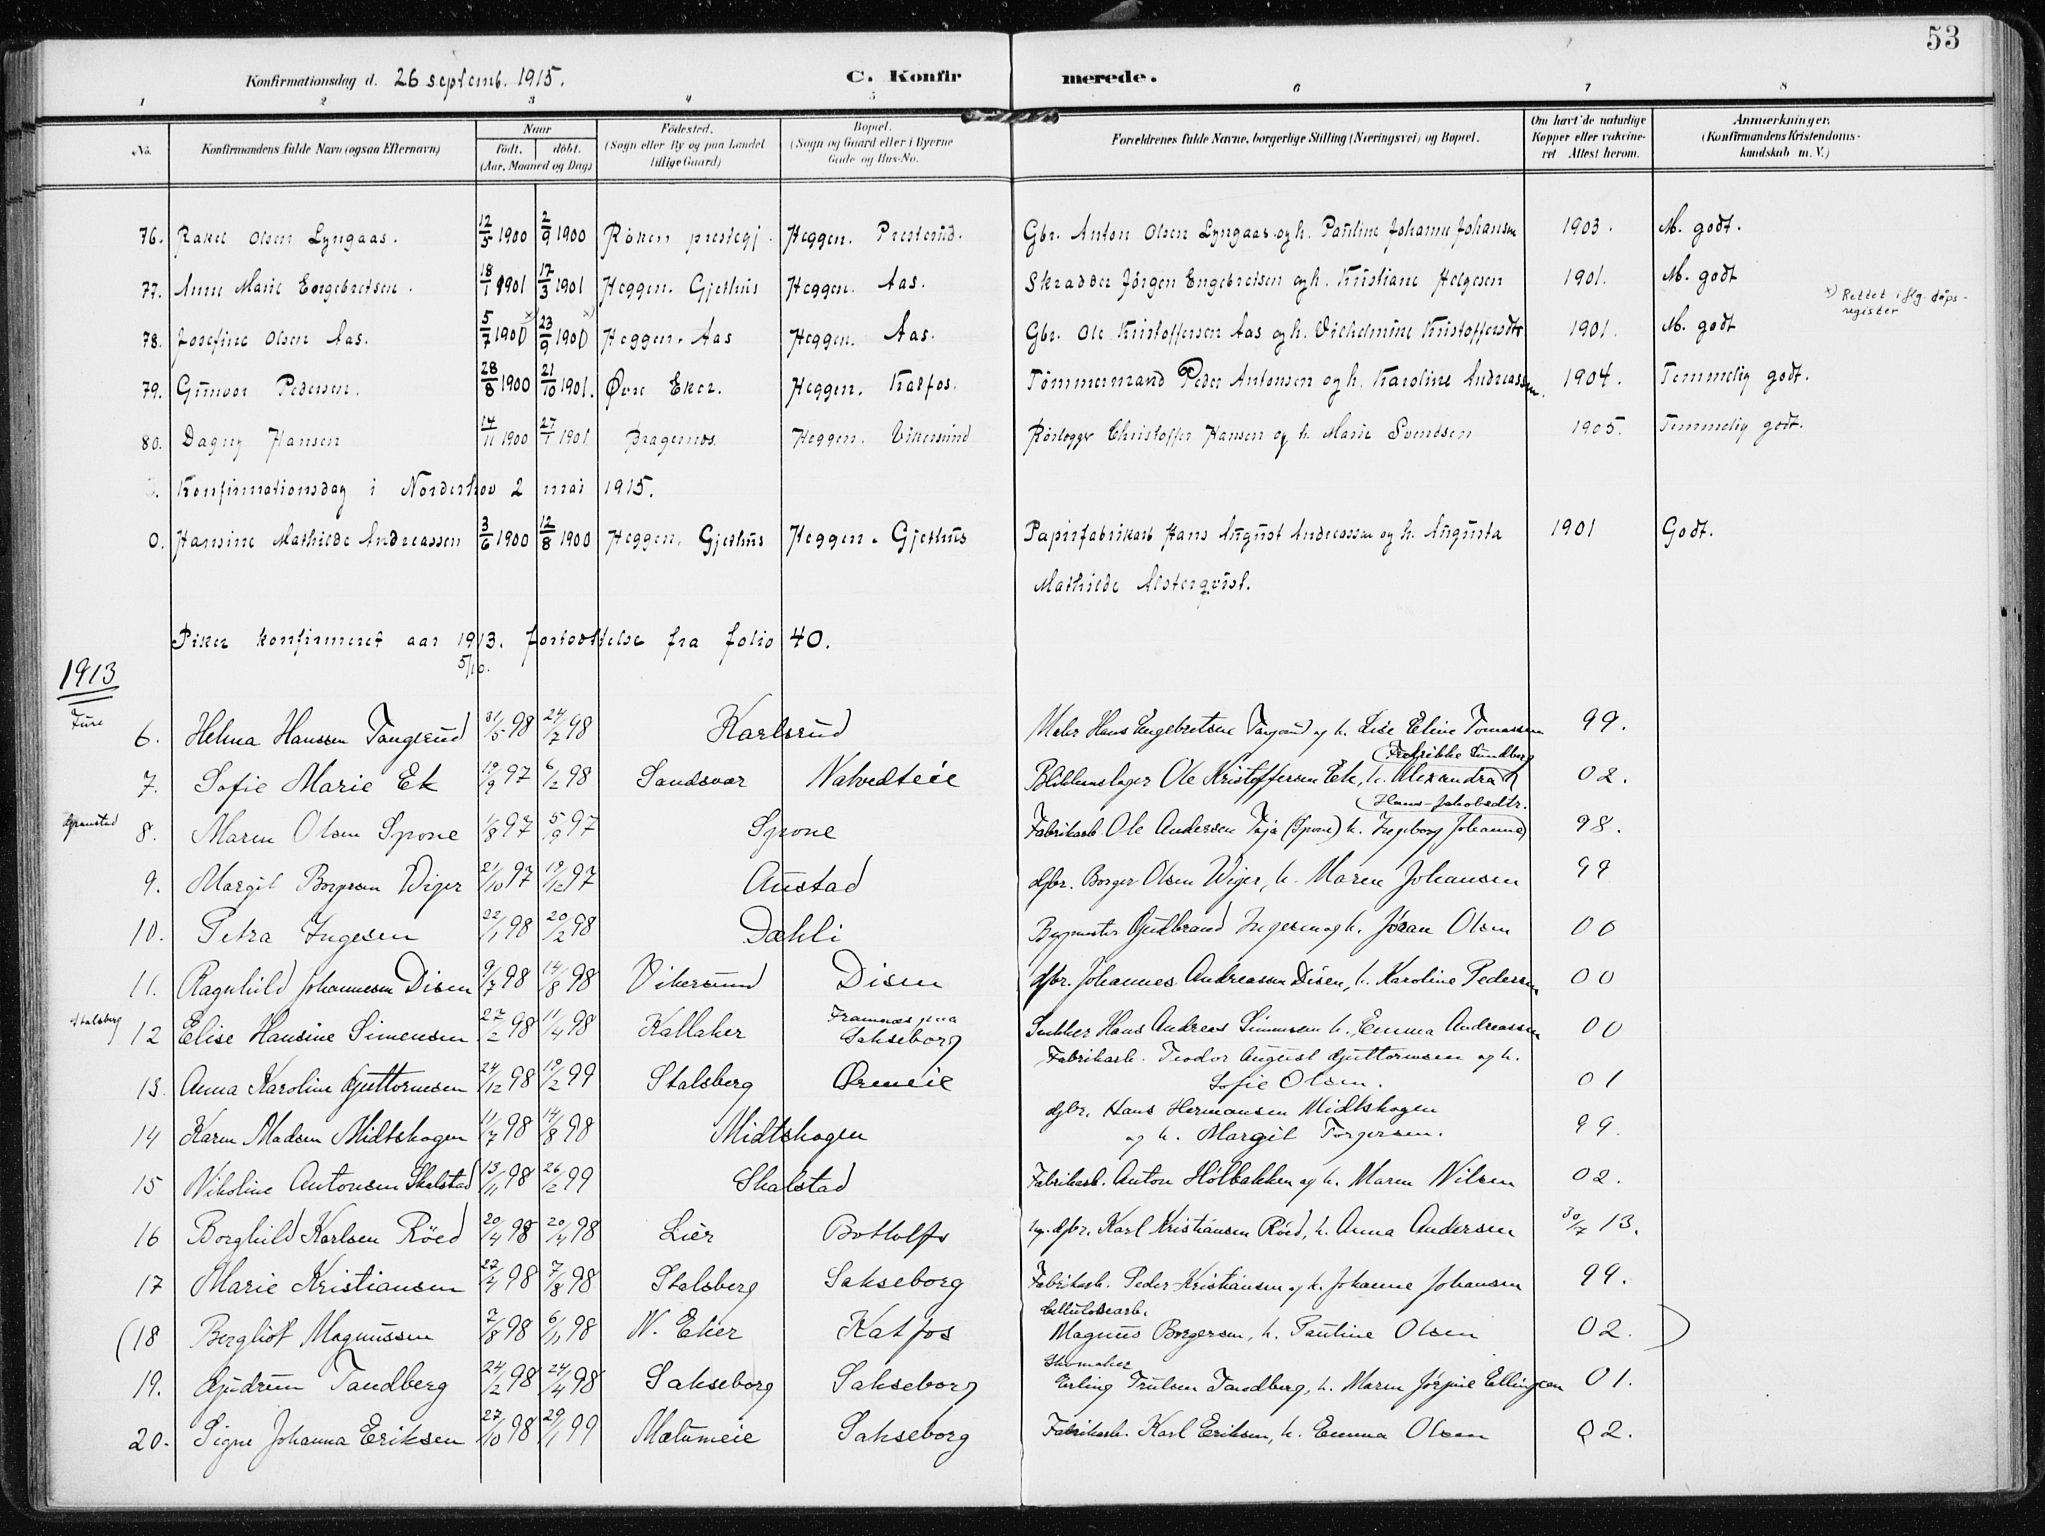 53
Konfirmationsdag d. 26 septemb. 1915. C. Konfir merede.
1 2 3 4 5 6 7 8
No. Konfirmandens fulde Navn (ogsaa Efternavn) Naar født. døbt. (Aar, Maaned og Dag) Fødested. (Sogn eller By og paa Landet tillige Gaard) Bopæl. (Sogn og Gaard eller i Byerne Gade og Hus-No. Forældrenes fulde Navne, borgerlige Stilling (Næringsvei) og Bopæl. Om havt de naturlige Kopper eller vakcineret Attest herom. Anmærkninger. (Konfirmandens Kristendomskundskab m. V.)
76. Rakel Olsen Lyngaas. 12/5 1900 2/9 1900 Röken prestegj. Heggen. Presterud. Gbr. Anton Olsen Lyngaas og h. Pauline Johanne Johansen 1903. M. godt.
77. Anne Marie Engebretsen. 18/1 1901 17/3 1901 Heggen. Gjethus Heggen. Aas. Skrædder Jörgen Engebretsen og h. Kristiane Helgesen 1901. M. godt
x) Rettet i flg. døpsregister
78. Josefine Olsen Aas. 5/7 1900 x) 23/9 1900 x) Heggen. Aas Heggen. Aas. Gbr. Ole Kristoffersen Aas og h. Vilhelmine Kristoffersdtr 1901. M. godt
79. Gunvor Pedersen. 28/8 1900 21/10 1901. Øvre Eker. Heggen. Katfos. Tömmermand Peder Antonsen og h. Karoline Andreassen. 1904. Temmelig godt.
80. Dagny Hansen 14/11 1900 27/1 1901 Bragernæs. Heggen. Vikersund Rörlægger Christoffer Hansen og h. Marie Svendsen 1905. Temmelig godt.
Konfirmationsdag i Norderhov 2 mai 1915.
0. Hansine Mathilde Andreassen 3/6 1900 12/8 1900 Heggen. Gjethus Heggen. Gjethus Papirfabrikarb Hans August Andreassen og h. Augusta 1901 Godt.
Mathilde Alsterqvist.
Piker konfirmeret aar 1913. fortsættelse fra folio 40.
5/10.
1913
Ture
6. Helma Hanssen Tangerud 31/5 98 24/7 98 Karlsrud Maler Hans Engebretsen Tangerud og h. Lise Eline Tomassen 99.
Fredrikke Sundberg
7. Sofie Marie Ek 19/9 97 6/2 98 Sandsvær Nakvedteie Blikkenslager Ole Kristoffersen Ek, h. Alexandra 02.
Hans-Jakobsdtr.
Grønstad 8. Maren Olsen Spone 1/8 97 5/9 97 Spone Fabrikarb. Ole Andersen (Spone) h. Ingeborg Johanne 98.
9. Margit Borgersen Wiger 21/10 97 19/12 97 Austad Gbr. Borger Olsen Wiger, h. Maren Johansen 99
10. Petra Ingesen 22/1 98 20/2 98 Dæhli Bygmester Gudbrand Ingesen og h. Jöran Olsen 00
11. Ragnhild Johannesen Disen 9/7 98 14/8 98 Vikersund Disen Gbr. Johannes Andreassen Disen, h. Karoline Pedersen 00
Stalsberg 12 Elise Hansine Simensen 27/2 98 11/4 98 Kallaker Framnæs paa Sakseborg Snekker Hans Andreas Simensen h. Emma Andreassen 00
13. Anna Karoline Guttormsen 24/12 98 19/2 99 Stalsberg Øreneie Fabrikarb. Teodor August Guttormsen og h. Sofie Olsen. 01
14 Karen Madsen Midtskogen 11/7 98 14/8 98 Midtskogen Gbr. Hans Hermansen Midtskogen og h. Margit Torgersen. 99.
15 Nikoline Antonsen Skalstad 13/11 98 26/2 99 Skalstad Fabrikarb. Anton Hölbakken og h. Maren Nilsen 02.
16 Borghild Karlsen Röed 20/4 98 20/4 98 Lier Bottolfs Gbr. Karl Kristiansen Röed, h. Anna Andersen 30/7 13.
17 Marie Kristiansen 27/4 98 7/8 98 Stalsberg Sakseborg Fabrikarb. Peder Kristiansen og h. Johanne Johansen 99.
(18 Bergliot Magnussen 7/8 98 6/11 98 N. Eker Katfos Cellulosearb. Magnus Borgersen, h. Pauline Olsen 02. )
19. Gudrun Tandberg 24/2 98 24/4 98 Sakseborg Sakseborg Skomaker Erling Trulsen Tandberg, h. Maren Jörgine Ellingsen 01.
20. Signe Johanna Eriksen 27/10 98 29/1 99 Mælumeie Sakseborg Fabrikarb. Karl Eriksen, h. Emma Olsen 02.